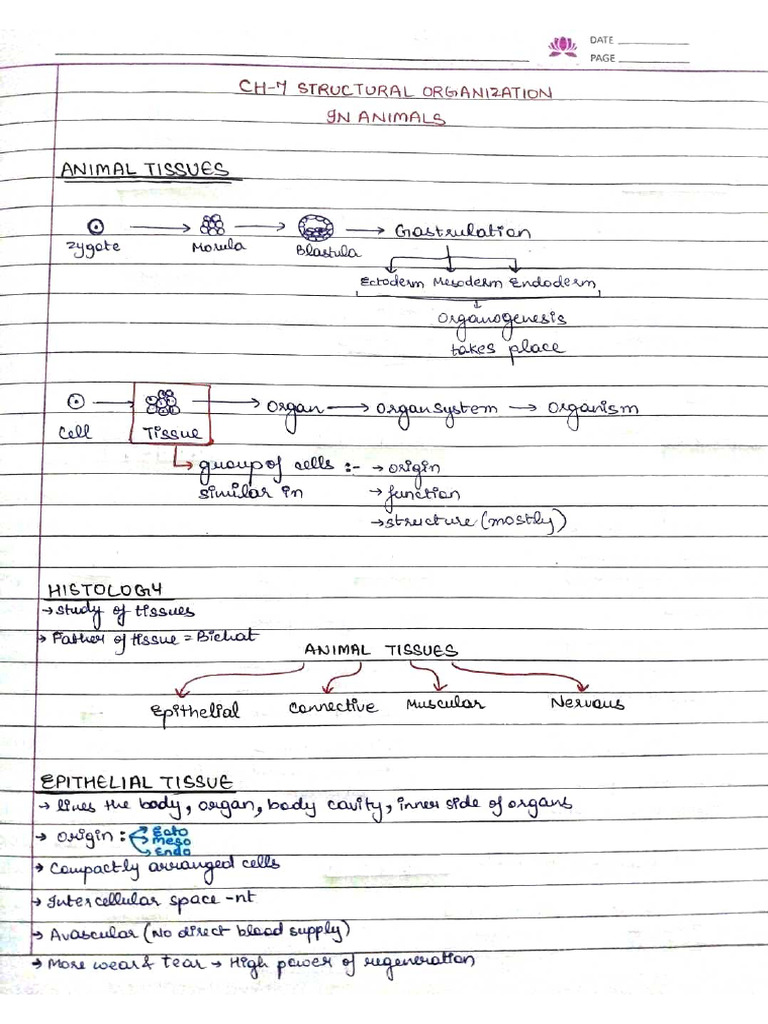 DATE
PAGE
CH-7 STRUCTURAL ORGANIZATION
IN ANIMALS
ANIMAL TISSUES
Zygote → Morula → Blastula → Gastrulation
Ectoderm Mesoderm Endoderm
Organogenesis
takes place
Cell → Tissue → Organ → Organ system → Organism
group of cells :- → origin
similar in → function
→ structure (mostly)
HISTOLOGY
→ Study of tissues
→ Father of tissue = Bichat
ANIMAL TISSUES
Epithelial Connective Muscular Nervous
EPITHELIAL TISSUE
→ lines the body, organ, body cavity, inner side of organs
→ Origin : Ecto
Meso
Endo
→ Compactly arranged cells
→ Intercellular space -nt
→ Avascular (No direct blood supply)
→ More wear & tear → High power of regeneration